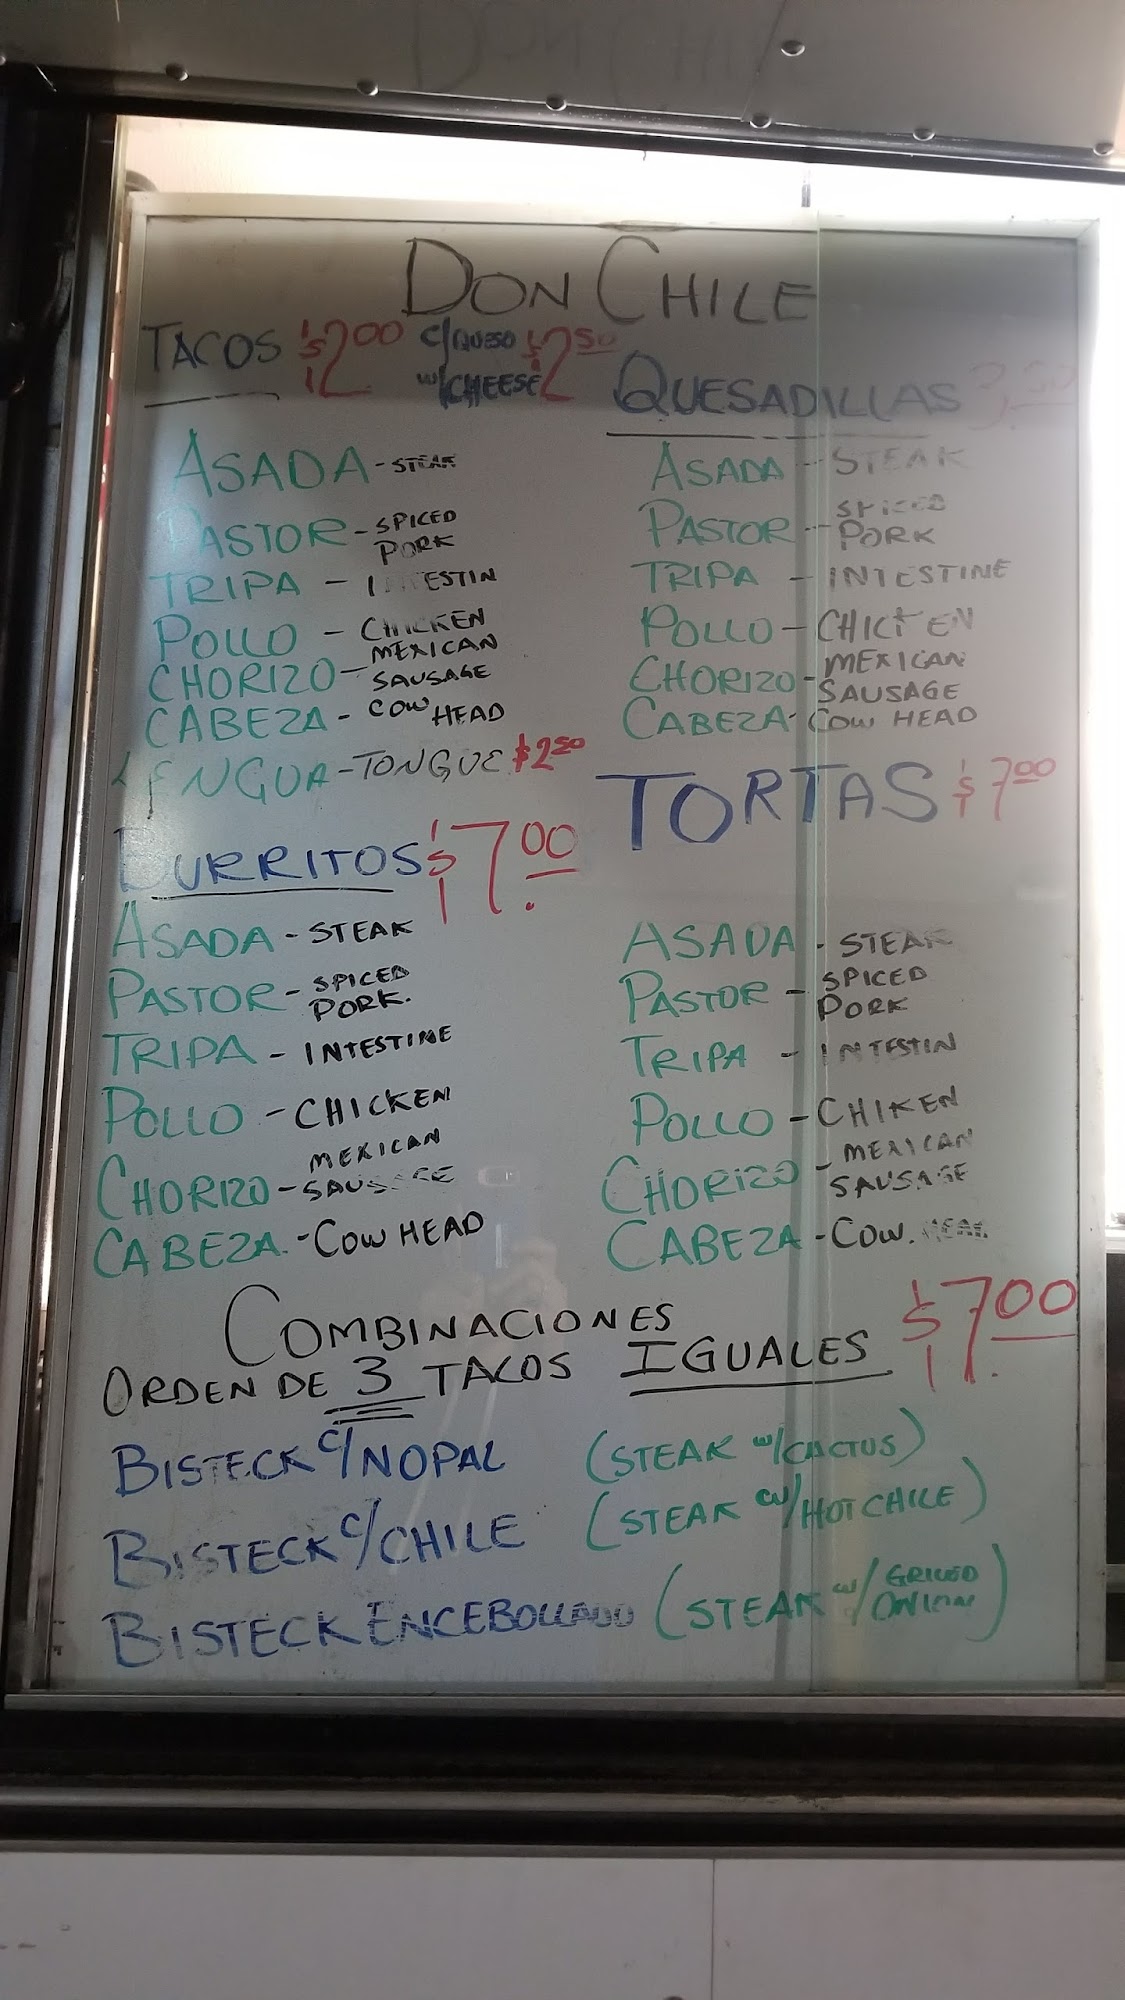 DON CHILE
TACOS $2.00 C/QUESO $2.50
W/CHEESE
ASADA - STEAK
PASTOR - SPICED
PORK
TRIPA - INTESTIN
POLLO - CHICKEN
CHORIZO - MEXICAN
SAUSAGE
CABEZA - COW HEAD
LENGUA - TONGUE $2.50
QUESADILLAS 3.50
ASADA - STEAK
PASTOR - SPICED
PORK
TRIPA - INTESTINE
POLLO - CHICKEN
CHORIZO - MEXICAN
SAUSAGE
CABEZA - COW HEAD
BURRITOS $7.00
ASADA - STEAK
PASTOR - SPICED
PORK.
TRIPA - INTESTINE
POLLO - CHICKEN
CHORIZO - MEXICAN
SAUSAGE
CABEZA. - COW HEAD
TORTAS $7.00
ASADA - STEAK
PASTOR - SPICED
PORK
TRIPA - INTESTIN
POLLO - CHIKEN
CHORIZO - MEXICAN
SAUSAGE
CABEZA - COW.
COMBINACIONES
ORDEN DE 3 TACOS IGUALES $7.00
BISTECK C/NOPAL (STEAK W/CACTUS)
BISTECK C/CHILE (STEAK W/HOT CHILE)
BISTECK ENCEBOLLADO (STEAK W/GRILED
ONION)